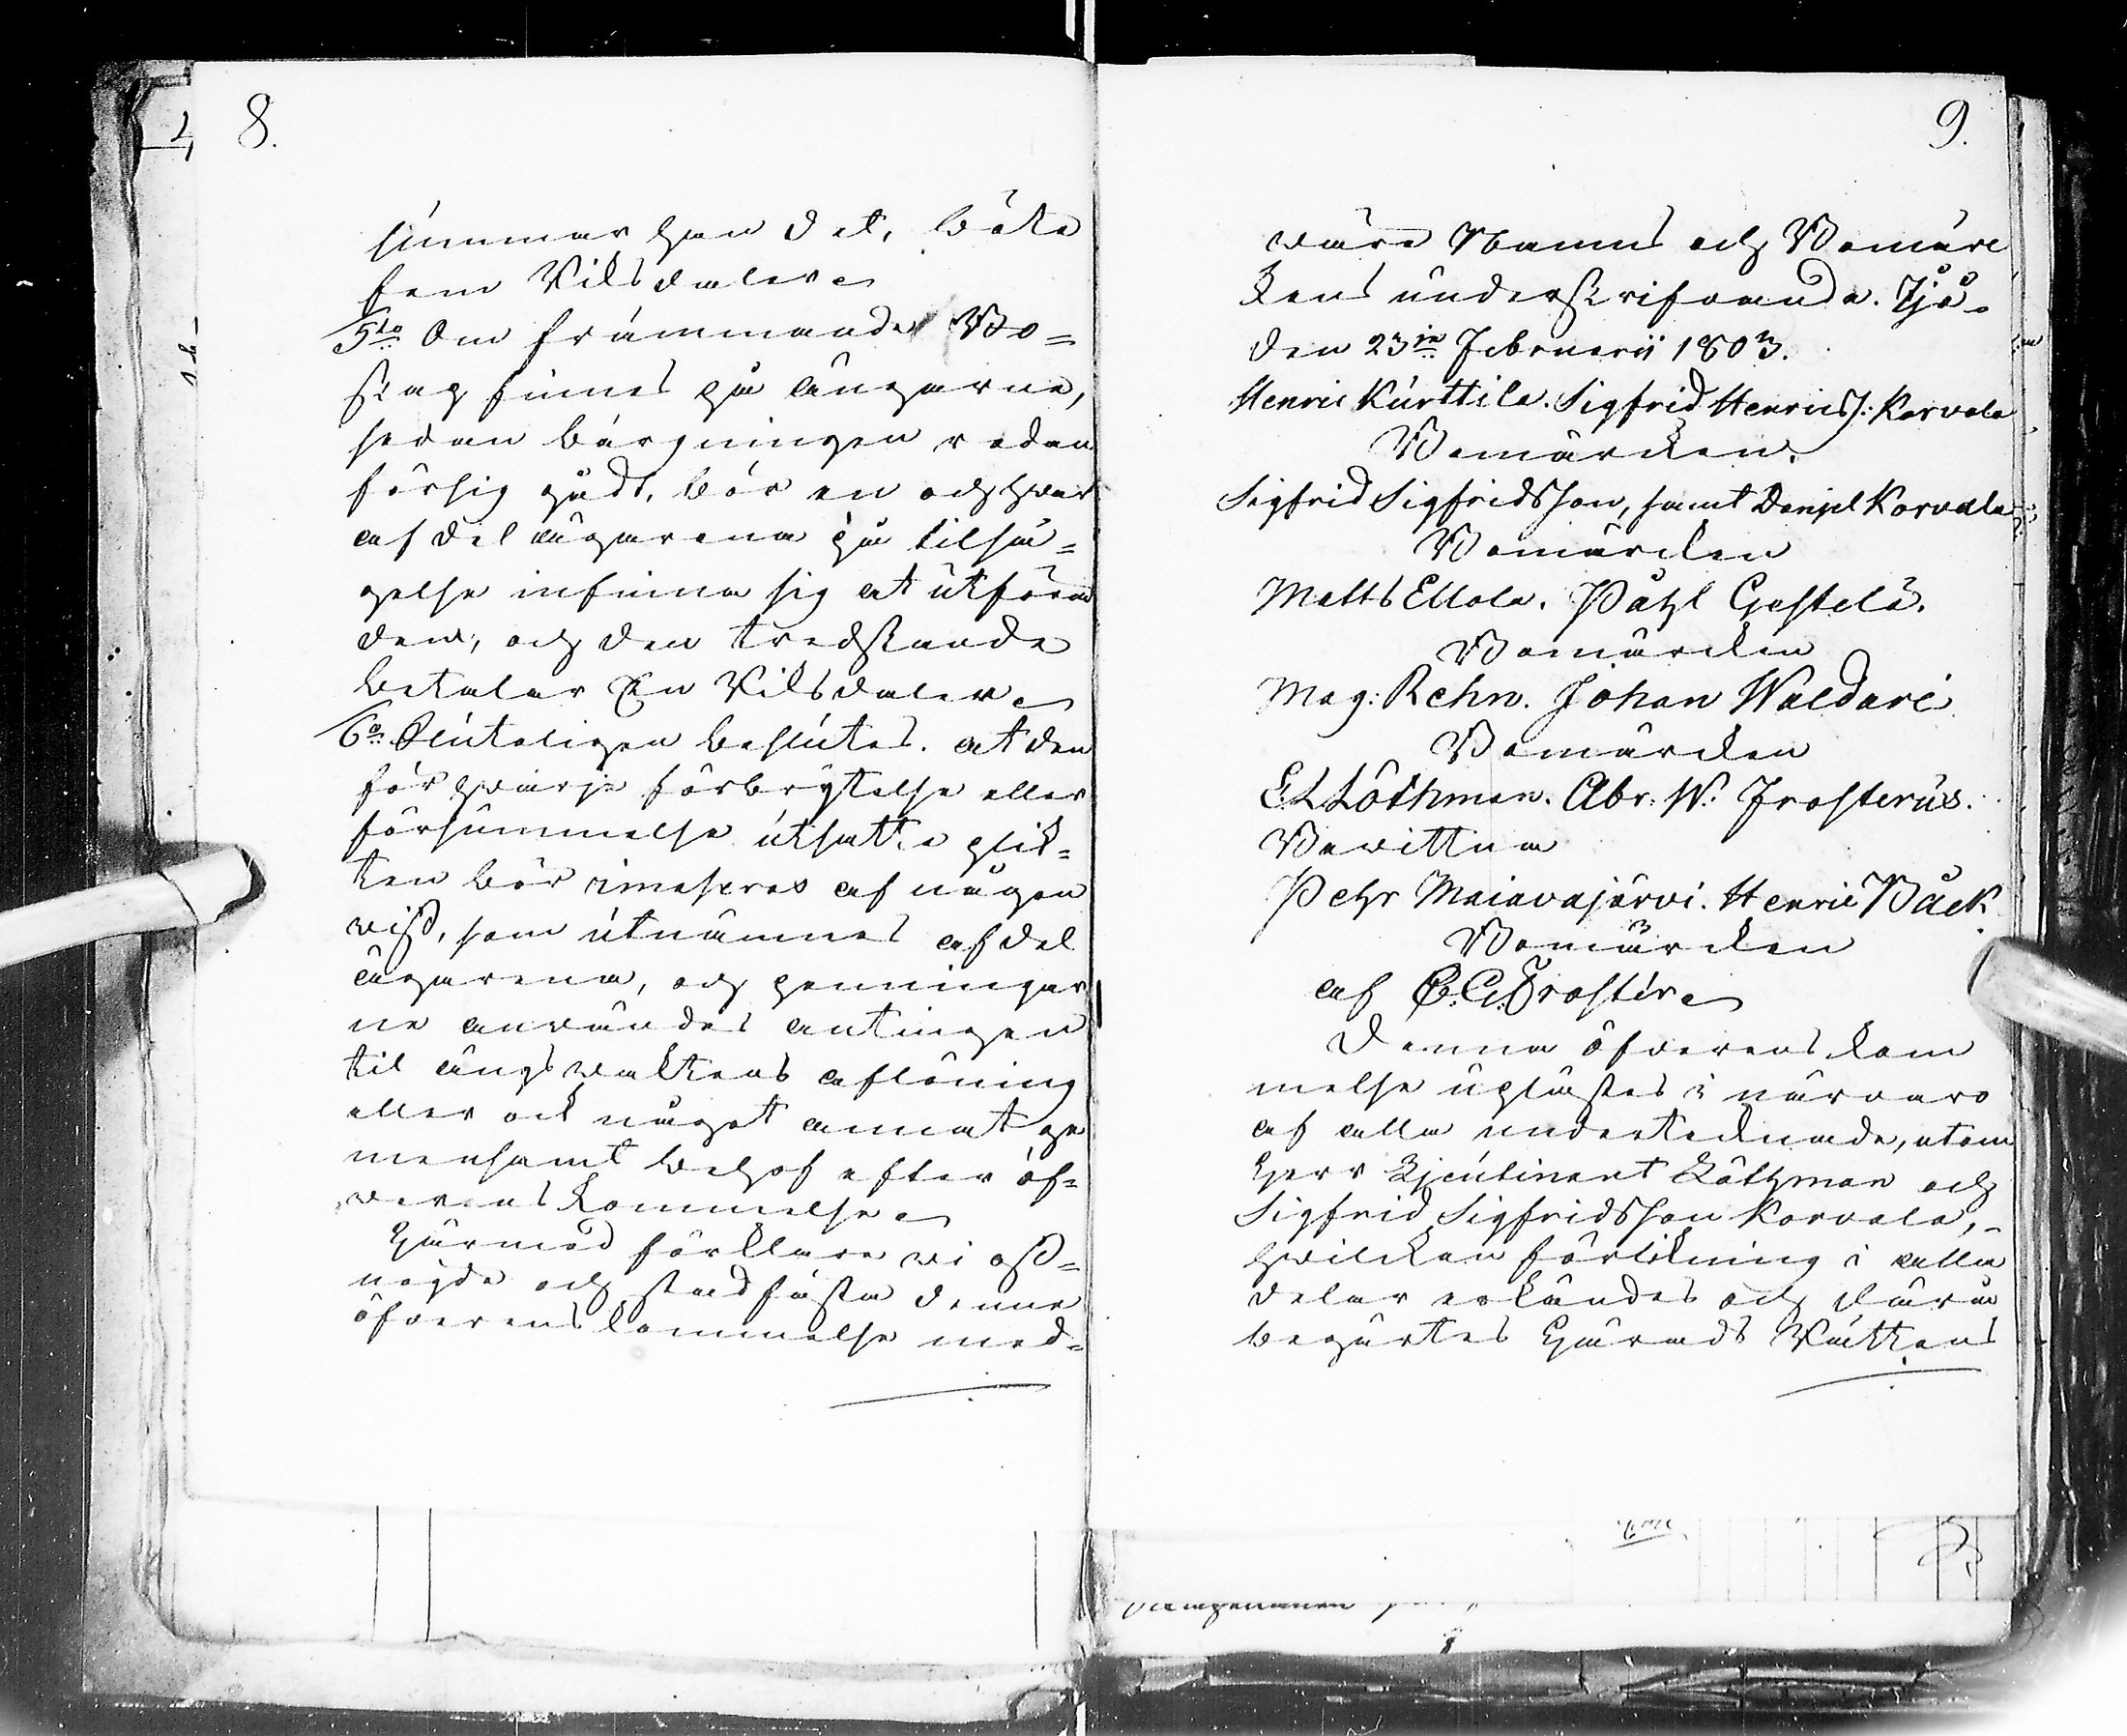 8.
summar han det, böte
fem Riksdaler.
5to Om främmande Bo=
skap finnes på ängarne,
sedan bärgningen redan
försig gådt, bör en och hvar
af del ägarena på tilsä=
gelse infinna sig at utföra
den, och den tredskande
betalar En Riksdaler.
6o Sluteligen beslutes. at den
för hvarje förbrytelse eller
försummelse utsatte plik=
ten bör af någon
viss, som utnämnes af del
ägarena, och penningar
ne användes antingen
til ängsvaktens aflöning
eller ock något annat ge
mensamt behof efter öf=
verenskommelse.
Härmed förklare vi oss=
nögde och stadfästa denne
öfverenskommelse med=
9.
våre Namns och Bomär
kens underskrifvande. Ijo.
den 23je Februarii 1803.
Henric Kurttila. Sigfrid Henricss: Korvala
Bomärken.
Sigfrid Sigfridsson, samt Daniel Korvala
Bomärken
Matts Ellola. Påhl Gestelä.
Bomärken
Mag: Rehn. Johan Waldari
Bomärken
E L Löthman. Abr: W: Frosterus.
Bevittna
Pehr Maiavajärvi. Henric Bäck
Bomärken
af E. G. Frostér.
Denna öfverenskom
melse uplästes i närvaro
af alla undertecknade, utom
Herr Lieutinant Löthman och
Sigfrid Sigfridsson Korvala,
hvilken förlikning i alla
delar erkändes och därå
begärtes Härads Rättens